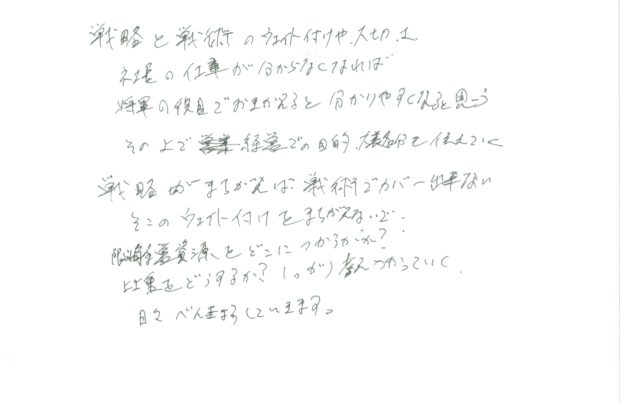 戦略と戦術のウェイト付けや、大切さ
社長の仕事が分からなくなれば
将軍の役目でおきかえると 分かりやすくなると思う
その上で 経営での目的、大義名分を伝えていく
戦略がまちがえば 戦術でカバー出来ない
そこのウェイト付けをまちがえないで、
限りある経営資源をどこにつかうか？
をどうするか？ しっかり考えつかっていく、
日々 べんきょうしていきます。